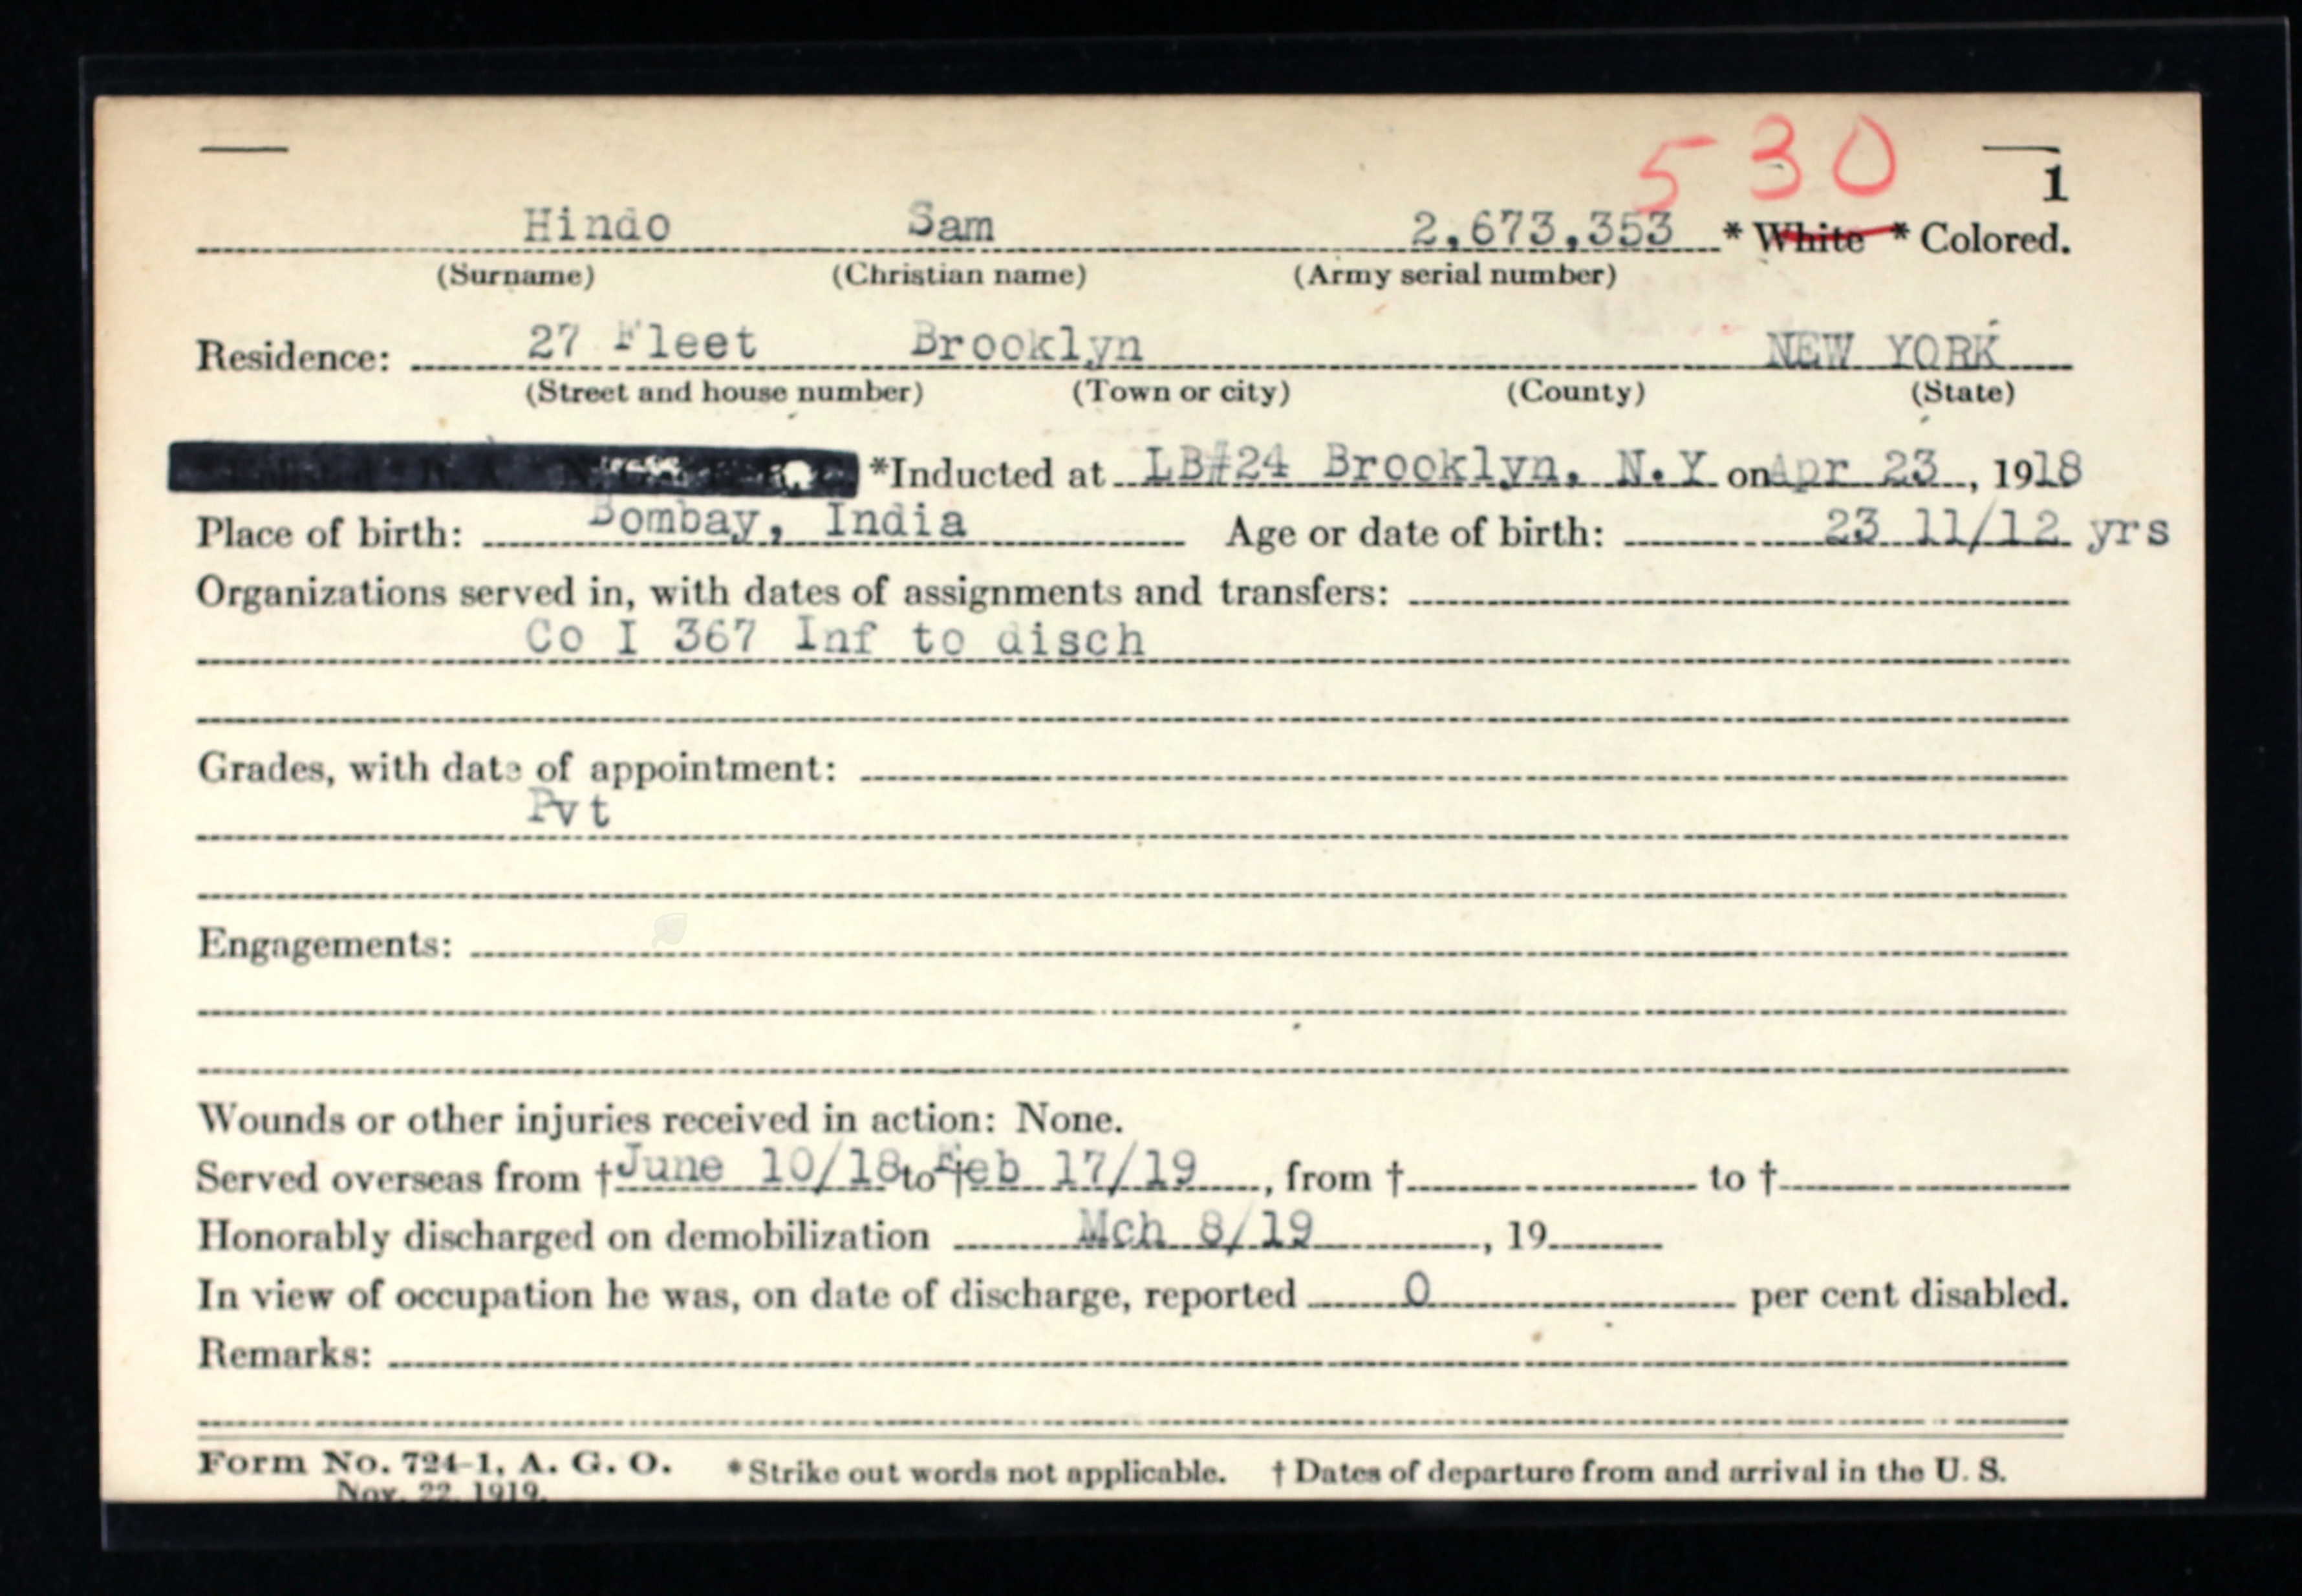 530
1
Hindo Sam 2,673,353 * White * Colored.
(Surname) (Christian name) (Army serial number)
Residence: 27 Fleet Brooklyn NEW YORK
(Street and house number) (Town or city) (County) (State)
*Inducted at LB#24 Brooklyn, N.Y on Apr 23, 1918
Place of birth: Bombay, India Age or date of birth: 23 11/12 yrs
Organizations served in, with dates of assignments and transfers:
Co I 367 Inf to disch
Grades, with date of appointment:
Pvt
Engagements:
Wounds or other injuries received in action: None.
Served overseas from † June 10/18 to † Feb 17/19, from † to †
Honorably discharged on demobilization Mch 8/19, 19
In view of occupation he was, on date of discharge, reported 0 per cent disabled.
Remarks:
Form No. 724-1, A. G. O. *Strike out words not applicable. † Dates of departure from and arrival in the U. S.
Nov. 22, 1919.